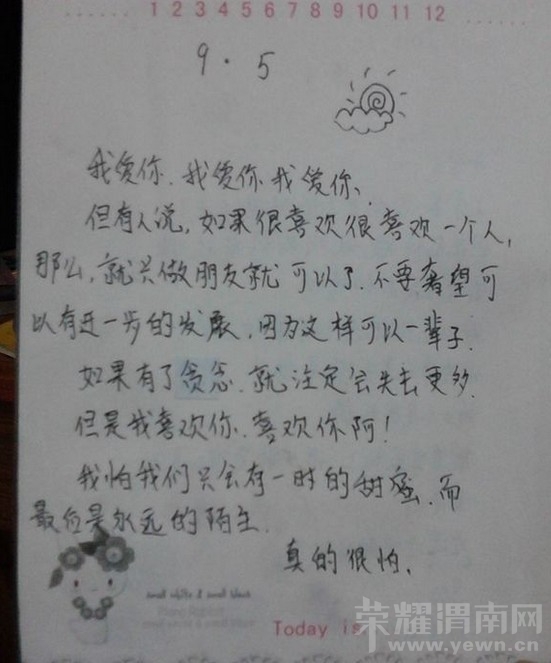 ...... 1 2 3 4 5 6 7 8 9 10 11 12 ......
9.5
我爱你.我爱你.我爱你.
但有人说,如果很喜欢很喜欢一个人,
那么,就只做朋友就可以了.不再奢望可
以有进一步的发展,因为这样可以一辈子.
如果有了贪念.就注定会失去更多.
但是我喜欢你.喜欢你阿!
我怕我们只会有一时的甜蜜.而
最后是永远的陌生.
真的很怕.
small white & small black
Today is
荣耀渭南网
www.yewn.cn